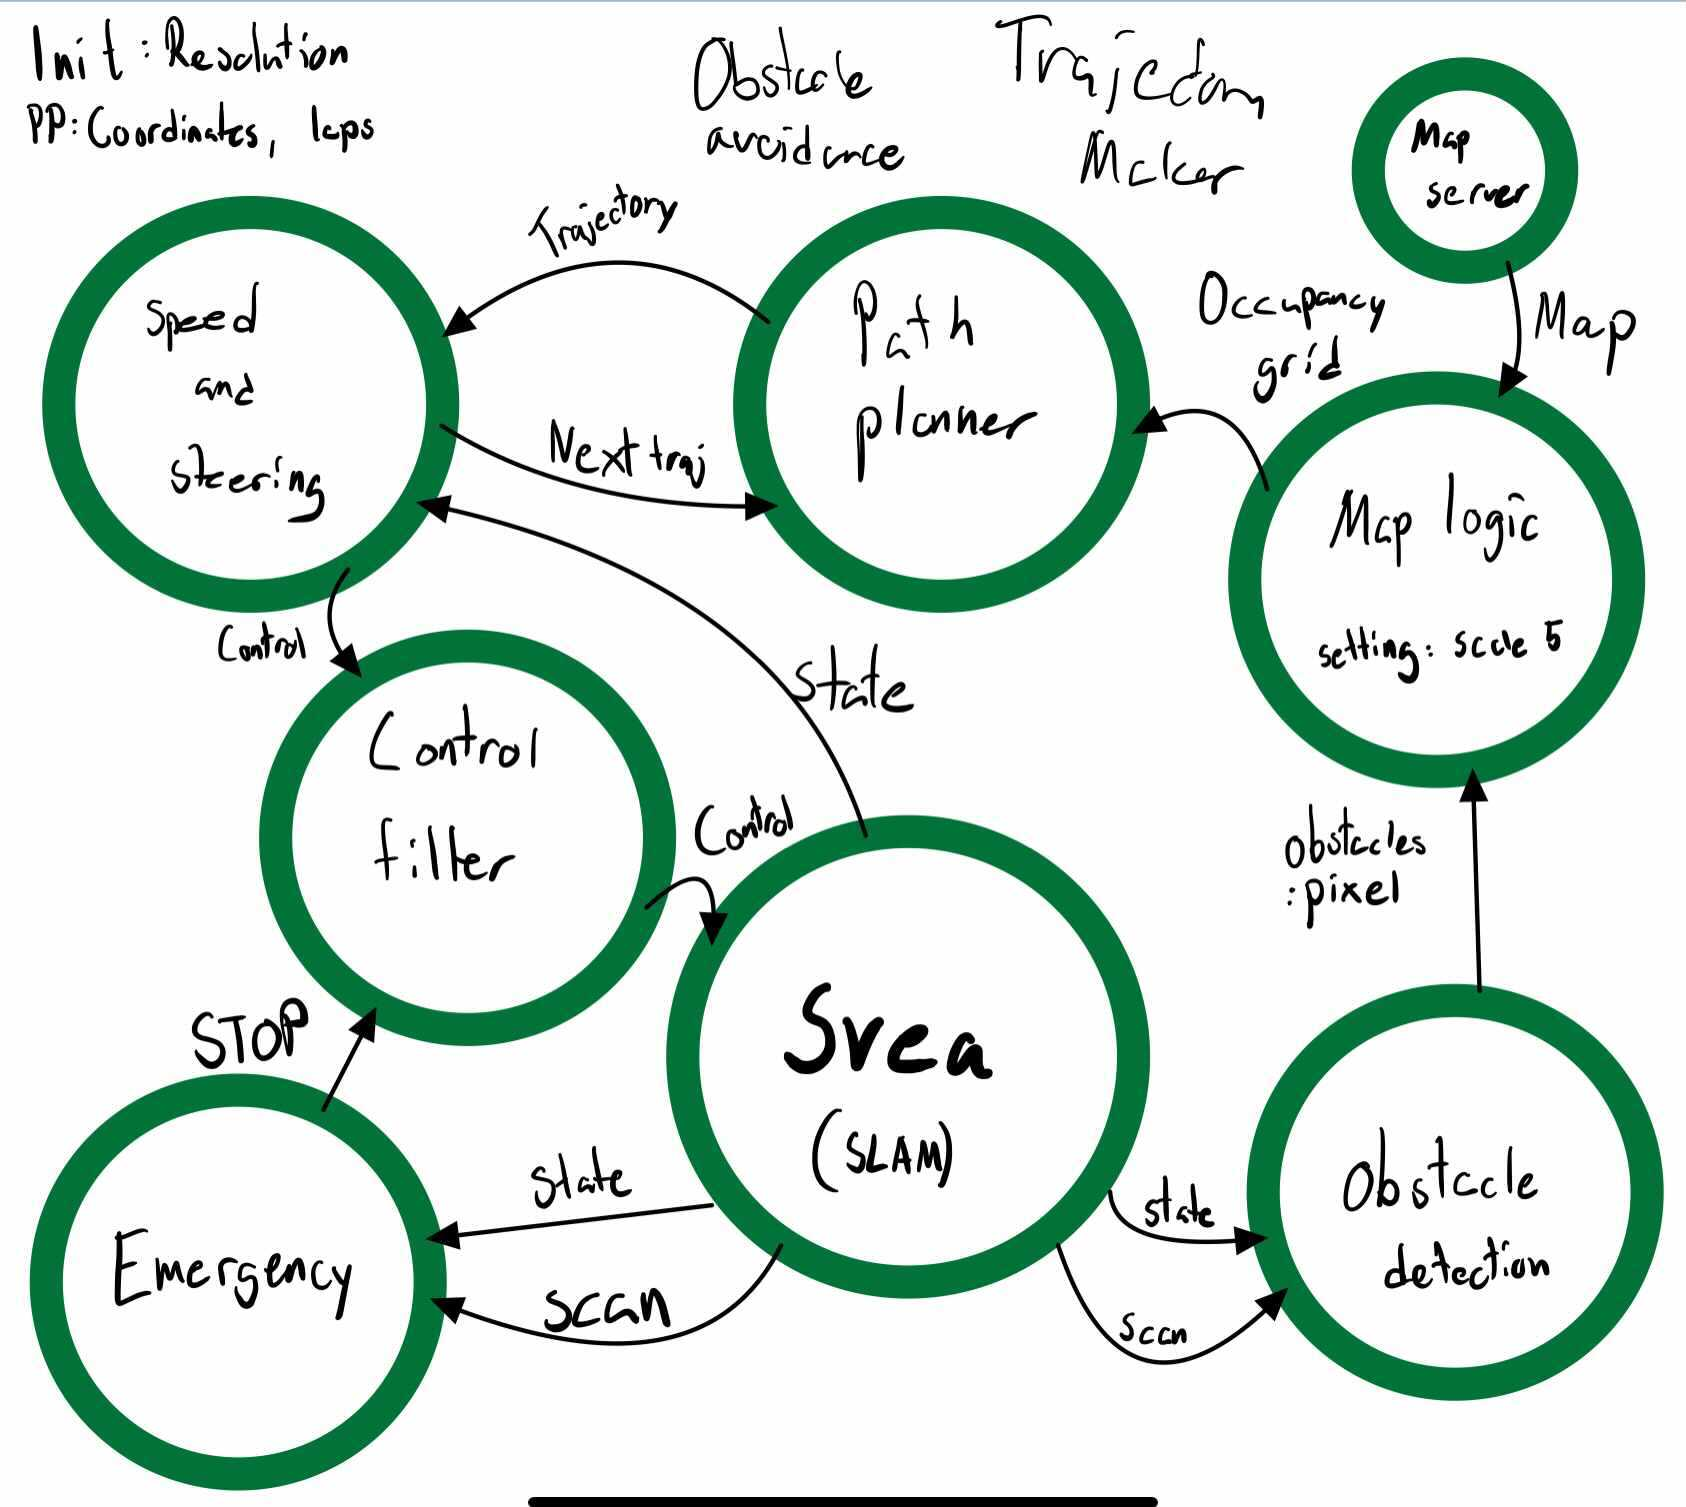 Init: Resolution
PP: Coordinates, laps
Obstacle
avoidance
Trajectory
Maker
Map
server
Trajectory
Speed
and
steering
Path
planner
Occupancy
grid
Map
Next traj
Map logic
setting: scale 5
Control
State
Control
filter
Control
obstacles
:pixel
STOP
Svea
(SLAM)
state
state
Obstacle
detection
Emergency
scan
scan